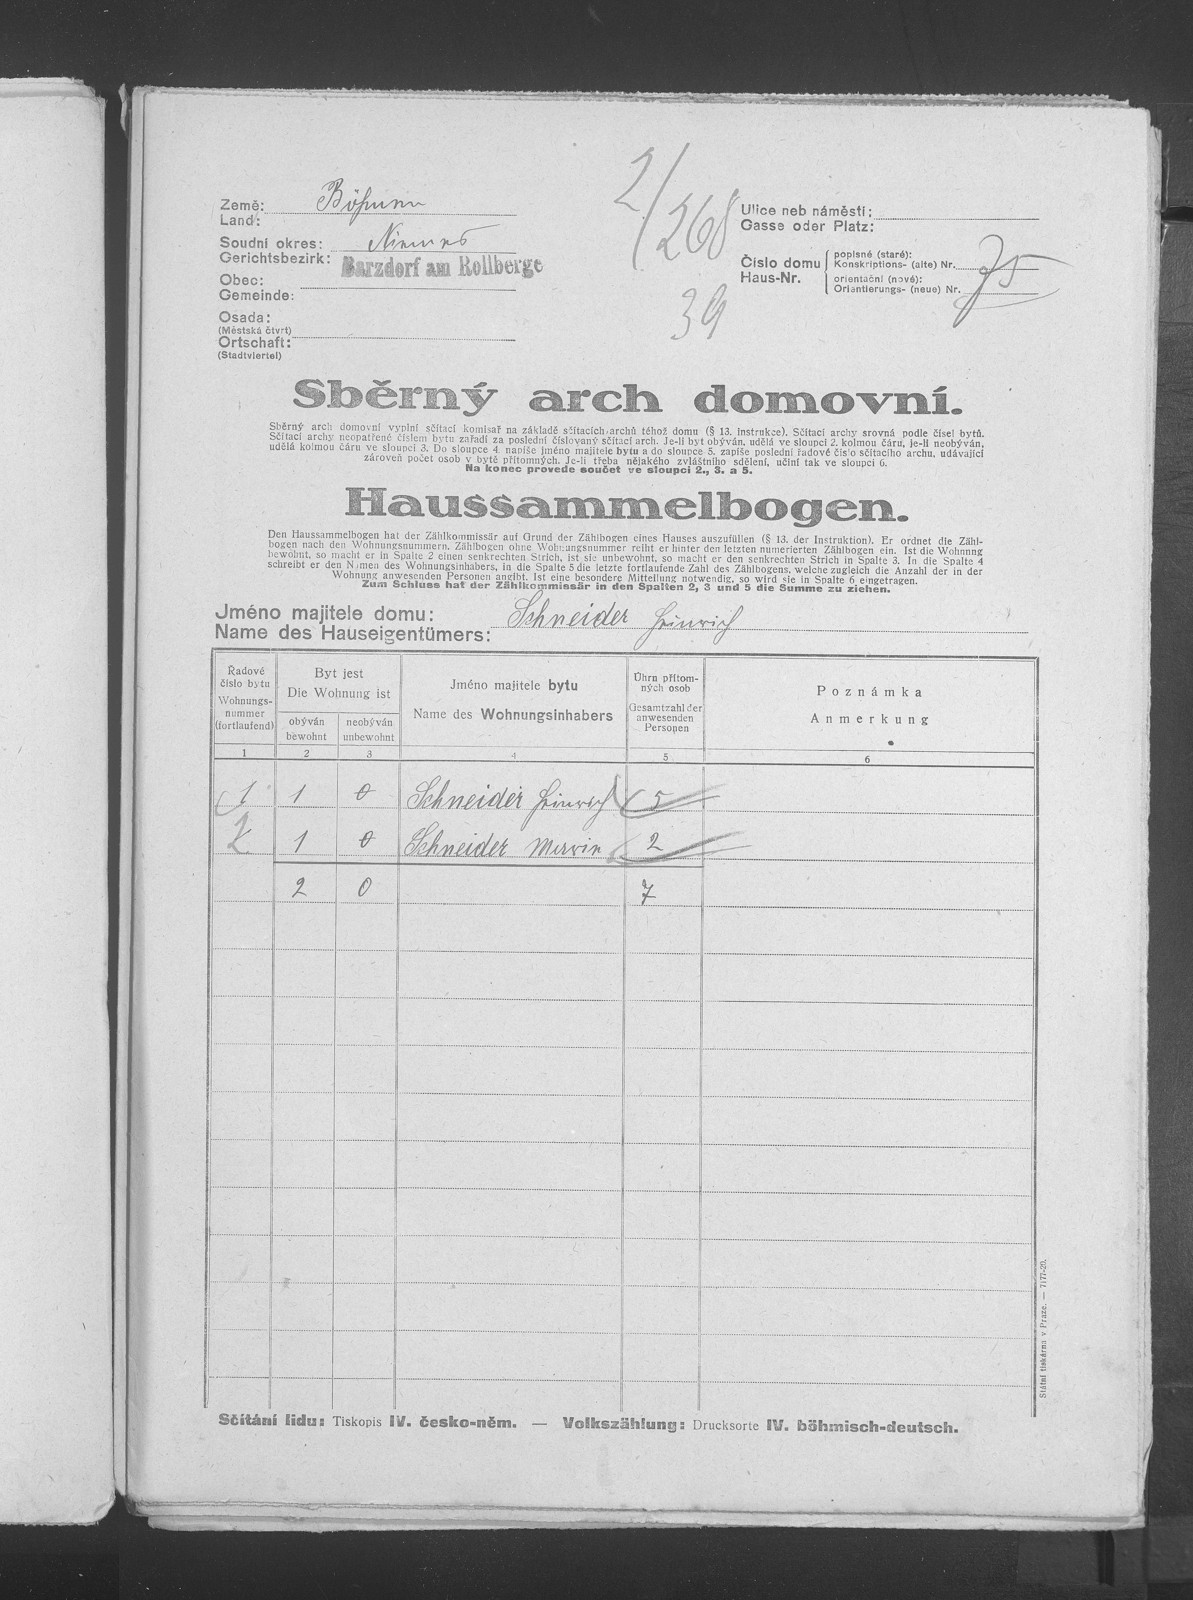 Země: Böhmen
Land:
Soudní okres: Niemes
Gerichtsbezirk:
Barzdorf am Rollberge
Obec:
Gemeinde:
Osada:
(Městská čtvrt)
Ortschaft:
(Stadtviertel)
2/268
39
Ulice neb náměstí:
Gasse oder Platz:
Číslo domu
Haus-Nr.
popisné (staré):
Konskriptions- (alte) Nr. 75
orientační (nové):
Orientierungs- (neue) Nr.
Sběrný arch domovní.
Sběrný arch domovní vyplní sčítací komisař na základě sčítacích archů téhož domu (§ 13. instrukce). Sčítací archy srovná podle čísel bytů.
Sčítací archy neopatřené číslem bytu zařadí za poslední číslovaný sčítací arch. Je-li byt obýván, udělá ve sloupci 2. kolmou čáru, je-li neobýván,
udělá kolmou čáru ve sloupci 3. Do sloupce 4. napíše jméno majitele bytu a do sloupce 5. zapíše poslední řadové číslo sčítacího archu, udávající
zároveň počet osob v bytě přítomných. Je-li třeba nějakého zvláštního sdělení, učiní tak ve sloupci 6.
Na konec provede součet ve sloupci 2., 3. a 5.
Haussammelbogen.
Den Haussammelbogen hat der Zählkommissär auf Grund der Zählbogen eines Hauses auszufüllen (§ 13. der Instruktion). Er ordnet die Zähl-
bogen nach den Wohnungsnummern. Zählbogen ohne Wohnungsnummer reiht er hinter den letzten numerierten Zählbogen ein. Ist die Wohnung
bewohnt, so macht er in Spalte 2 einen senkrechten Strich, ist sie unbewohnt, so macht er den senkrechten Strich in Spalte 3. In die Spalte 4
schreibt er den Namen des Wohnungsinhabers, in die Spalte 5 die letzte fortlaufende Zahl des Zählbogens, welche zugleich die Anzahl der in der
Wohnung anwesenden Personen angibt. Ist eine besondere Mitteilung notwendig, so wird sie in Spalte 6 eingetragen.
Zum Schluss hat der Zählkommissär in den Spalten 2, 3 und 5 die Summe zu ziehen.
Jméno majitele domu: Schneider Heinrich
Name des Hauseigentümers:
Řadové
číslo bytu
Wohnungs-
nummer
(fortlaufend)
Byt jest
Die Wohnung ist
obýván
bewohnt
neobýván
unbewohnt
Jméno majitele bytu
Name des Wohnungsinhabers
Úhrn přítom-
ných osob
Gesamtzahl der
anwesenden
Personen
Poznámka
Anmerkung
1 2 3 4 5 6
1 1 0 Schneider Heinrich 5
2 1 0 Schneider 2
2 0 7
Sčítání lidu: Tiskopis IV. česko-něm. — Volkszählung: Drucksorte IV. böhmisch-deutsch.
Státní tiskárna v Praze. — 7177-20.